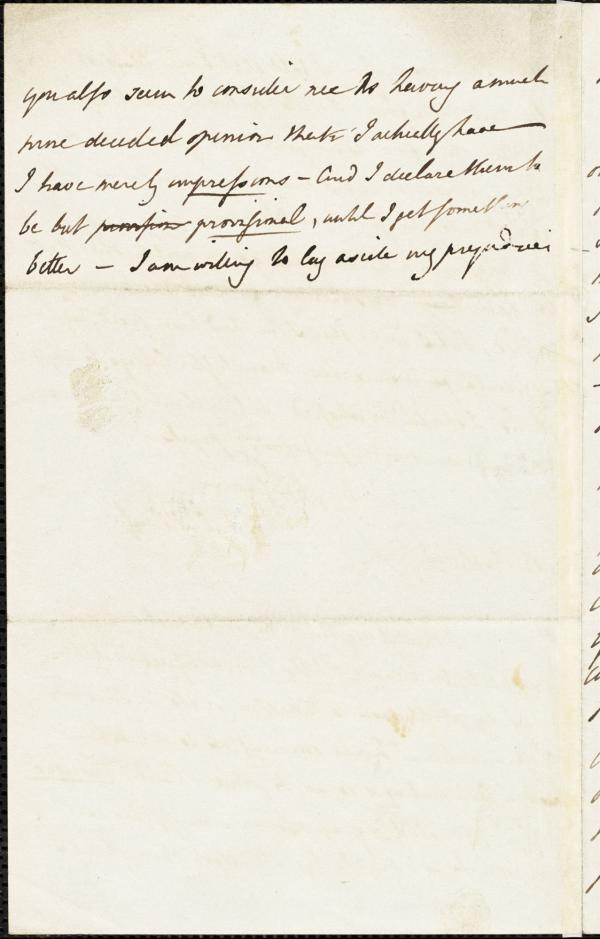 you also seem to consider me as having a much
more decided opinion that I actually have
I have merely impressions – And I declare them to
be but provisional, until I get something
better – I am willing to lay aside my prejudices